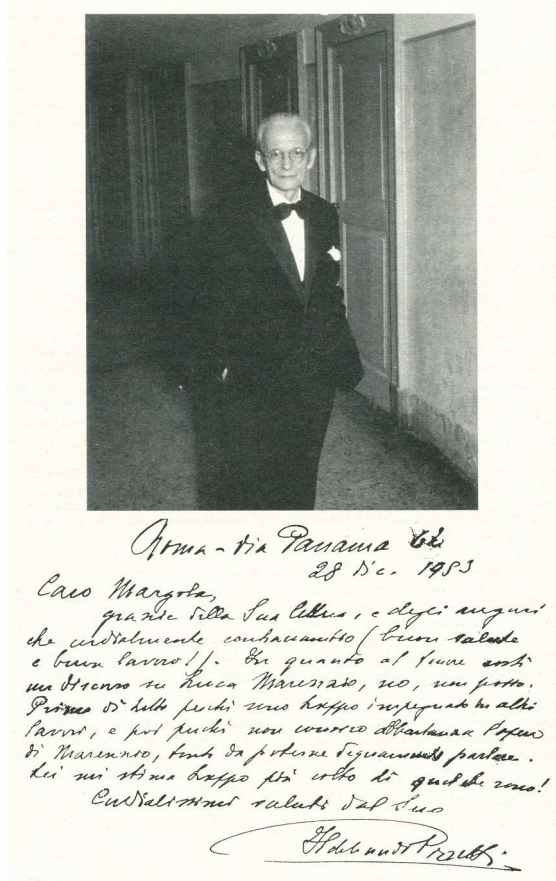 Roma - via Panama 62
28 Dic. 1953
Caro Margola,
grazie della Sua lettera, e degli auguri
che cordialmente contraccambio (buona salute
e buon lavoro!). In quanto al tenere costì
un discorso su Luca Marenzio, no, non posso.
Prima di tutto perché sono troppo impegnato in altri
lavori, e poi perché non conosco abbastanza l'opera
di Marenzio, tanto da poterne degnamente parlare.
Lei mi stima troppo più colto di quel che sono!
Cordialissimi saluti dal Suo
Ildebrando Pizzetti